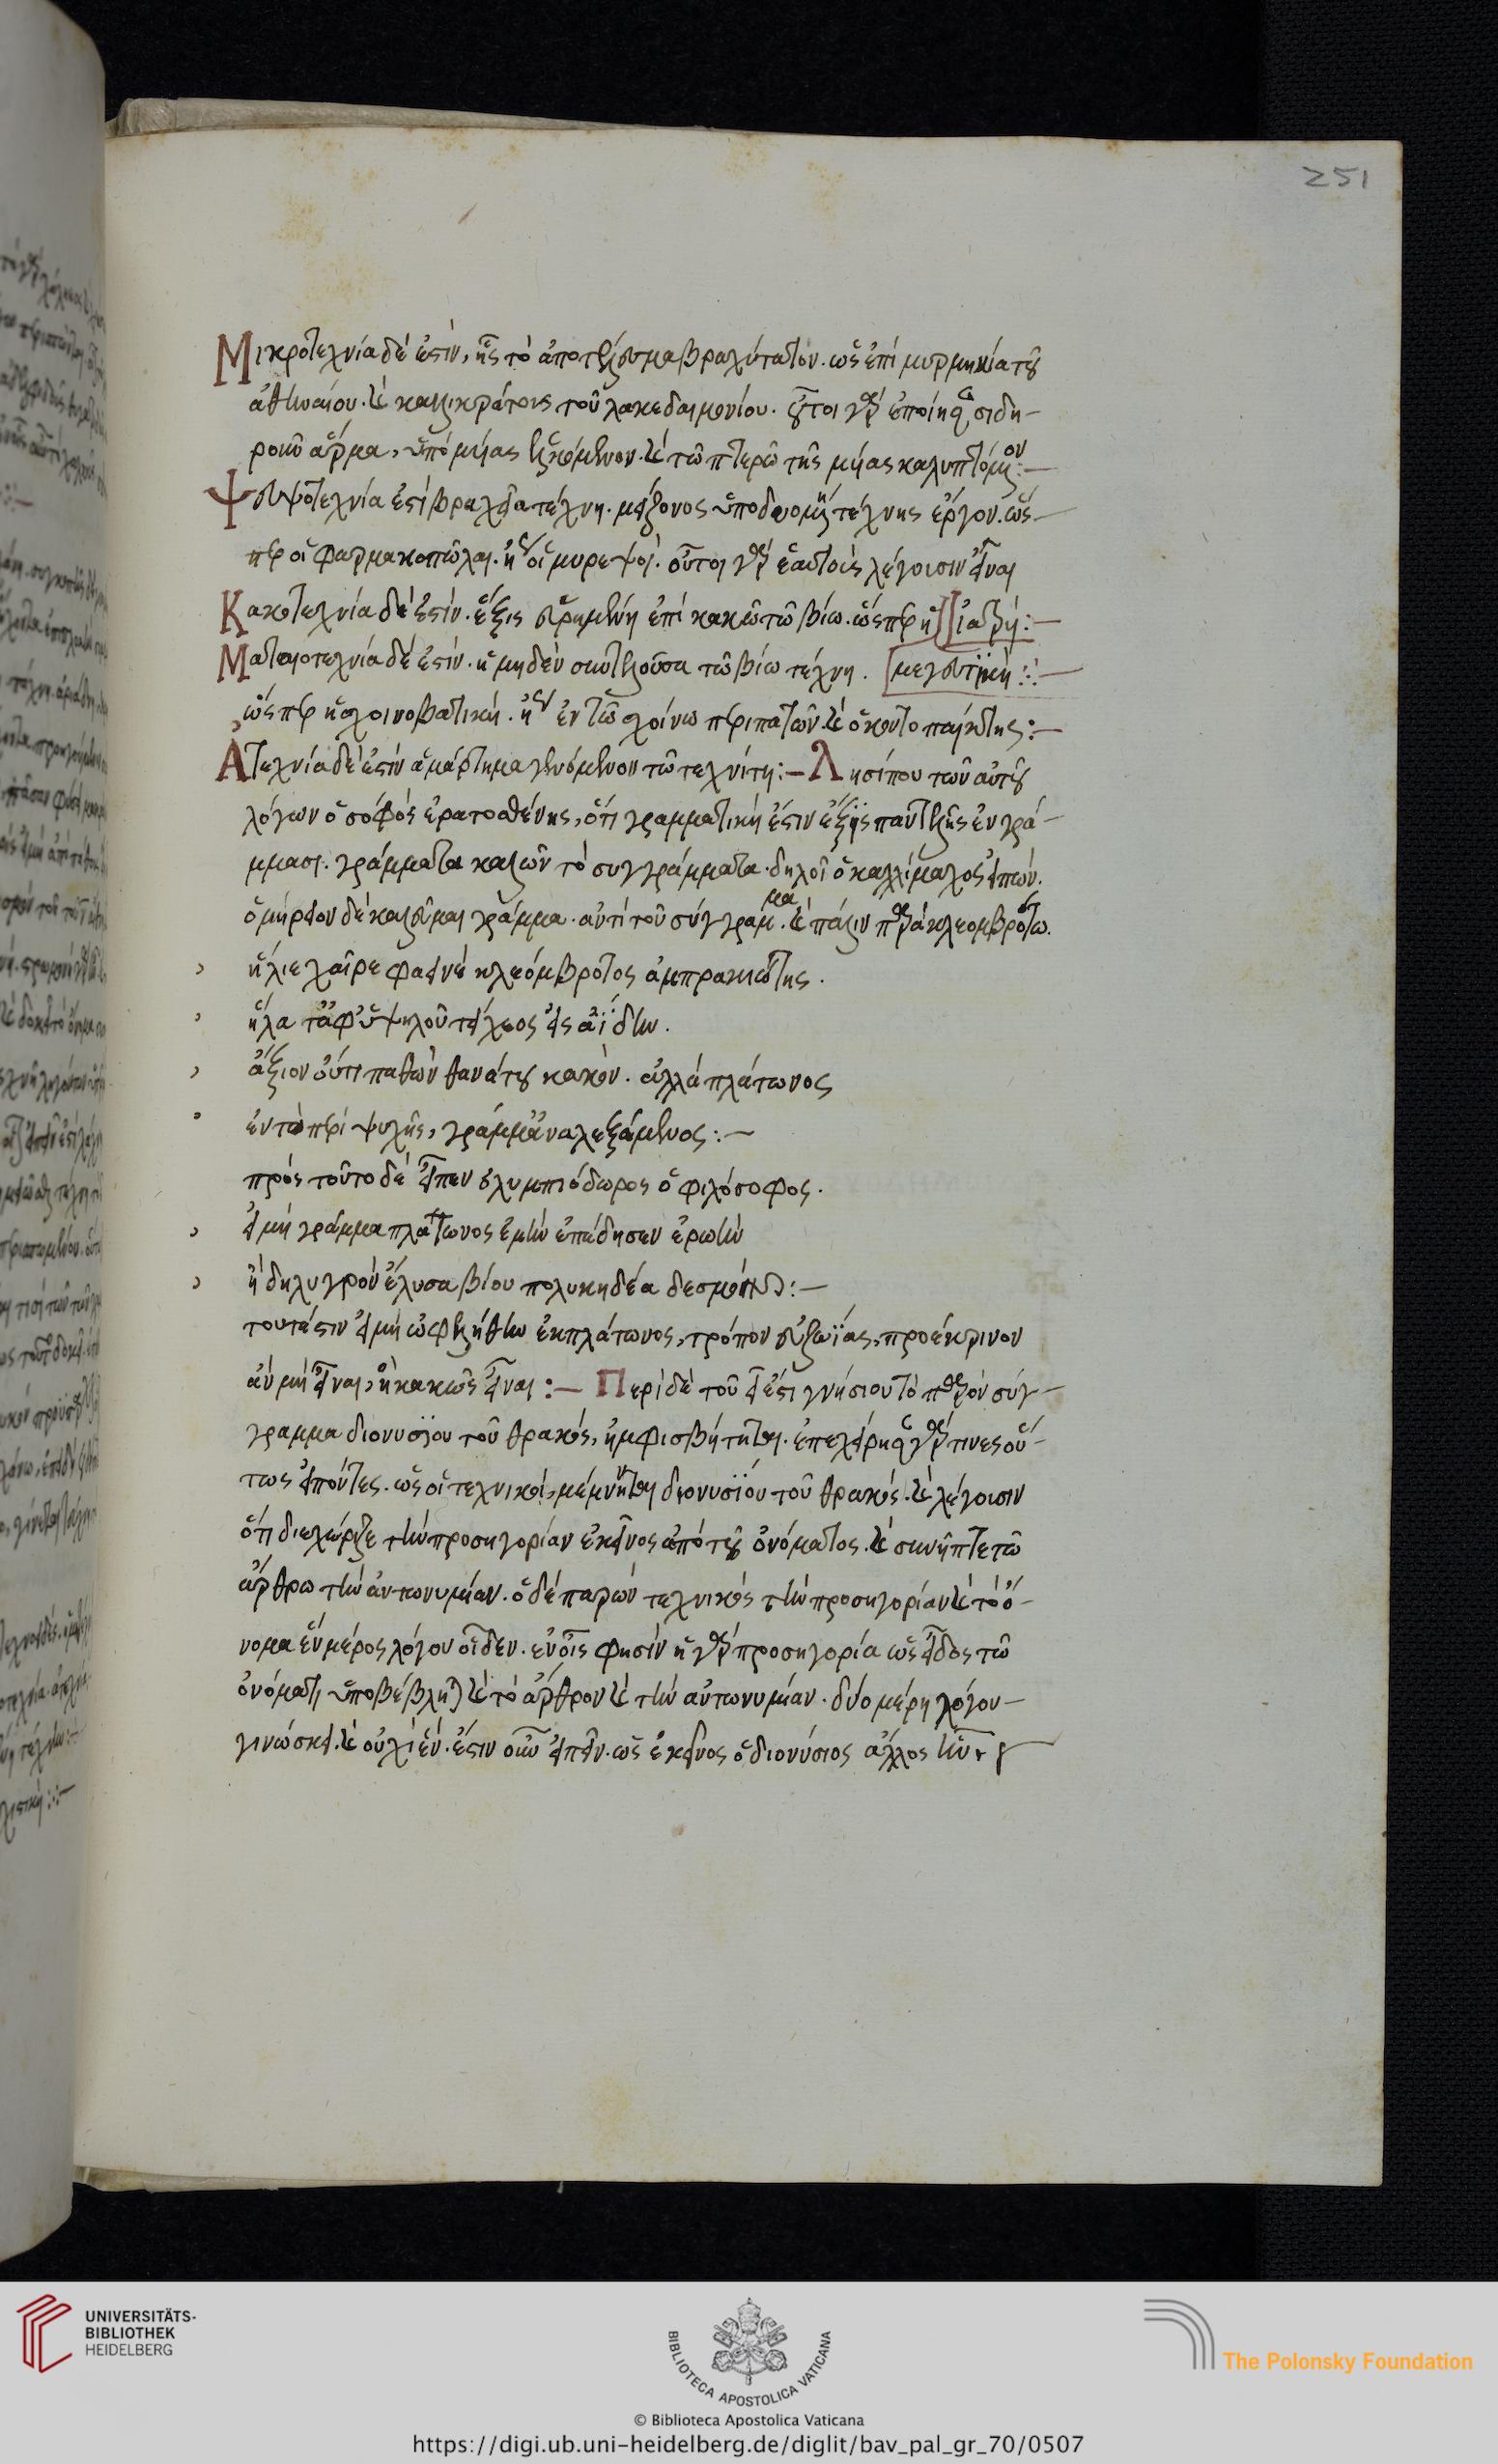 251
Μικροτεχνία δέ ἐστὶν, ἧς τὸ ἀποτέλεσμα βραχύτατον. ὡς ἐπὶ μυρμηκία τοῦ
ἀθηναίου. καὶ καλλικράτους τοῦ λακεδαιμονίου. οὗτοι γὰρ ἐποίησαν σιδη-
ροῦν ἅρμα, ὑπὸ μυίας ἑλκόμενον. καὶ τῶ πτερῶ τῆς μυίας καλυπτόμενον:—
Ψευδοτεχνία ἐστὶ βραχεῖα τέχνη. μείζονος ὑποδυομένη τέχνης ἔργον. ὥς-
περ οἱ φαρμακοπῶλαι. ἢ οἱ μυρεψοί. οὗτοι γὰρ ἑαυτοὺς λέγουσιν εἶναι
Κακοτεχνία δέ ἐστίν. ἕξις εὑρημένη ἐπὶ κακῶ τῶ βίω. ὥσπερ ἡ [ἰατροί:—
Ματαιοτεχνία δέ ἐστίν. ἡ μηδὲν συντελοῦσα τῶ βίω τέχνη. [μαγευτική:—
ὥσπερ ἡ σχοινοβατική. ἢ ἐν τῶ σχοίνω περιπατῶν. καὶ ὁ κοντοπαίκτης:—
Ἀτεχνία δέ ἐστὶν ἁμάρτημα γενόμενον τῶ τεχνίτη:— Λησίπου τῶν αὐτοῦ
λόγων ὁ σοφὸς ἐρατοσθένης, ὅτι γραμματική ἐστιν ἕξις παντελὴς ἐν γρά-
μμασι. γράμματα καλῶν τὸ συγγράμματα. δηλοῖ ὁ καλλίμαχος εἰπών.
ὁμήρειον δὲ καλεῦμαι γράμμα. ἀντὶ τοῦ σύγγραμμα. καὶ πάλιν παρὰ κλεομβρότω.
ἥλιε χαῖρε φαεινὲ κλεόμβροτος ἀμπρακιώτης.
ἥλα τἀφ' ὑψηλοῦ τείχεος εἰς ἀΐδην.
ἄξιον οὔτι παθὼν θανάτου κακόν. ἀλλὰ πλάτωνος
ἐν τὸ περὶ ψυχῆς, γράμμ' ἀναλεξάμενος:—
πρὸς τοῦτο δὲ εἶπεν ὀλυμπιόδωρος ὁ φιλόσοφος.
εἰ μὴ γράμμα πλάτωνος ἐμὴν ἐπέδησεν ἐρωὴν
ἤδη λυγρὸν ἔλυσα βίου πολυκηδέα δεσμόν:—
τουτέστιν εἰ μὴ ὠφελήθην ἐκ πλάτωνος, τρόπον εὐζωΐας, προέκρινον
ἂν μὴ εἶναι, ἢ κακῶς εἶναι:— Περὶ δὲ τοῦ εἰ ἔστι γνήσιον τὸ παρὸν σύγ-
γραμμα διονυσίου τοῦ θρακός, ἠμφισβήτηται. ἐπεχείρησαν γάρ τινες οὕ-
τως εἰπόντες. ὡς οἱ τεχνικοὶ, μέμνηνται διονυσίου τοῦ θρακός. καὶ λέγουσιν
ὅτι διεχώριζε τὴν προσηγορίαν ἐκεῖνος ἀπὸ τοῦ ὀνόματος. καὶ συνῆπτε τῶ
ἄρθρω τὴν ἀντωνυμίαν. ὁ δὲ παρὼν τεχνικὸς τὴν προσηγορίαν καὶ τὸ ὄ-
νομα ἓν μέρος λόγου οἶδεν. ἐν οἷς φησὶν ἡ γὰρ προσηγορία ὡς εἶδος τῶ
ὀνόματι ὑποβέβληται καὶ τὸ ἄρθρον καὶ τὴν ἀντωνυμίαν. δύο μέρη λόγου
γινώσκει. καὶ οὐχὶ ἕν. ἔστιν οὖν εἰπεῖν. ὡς ἐκεῖνος ὁ διονύσιος ἄλλος ἦν
UNIVERSITÄTS-
BIBLIOTHEK
HEIDELBERG
BIBLIOTECA APOSTOLICA VATICANA
The Polonsky Foundation
© Biblioteca Apostolica Vaticana
https://digi.ub.uni-heidelberg.de/diglit/bav_pal_gr_70/0507